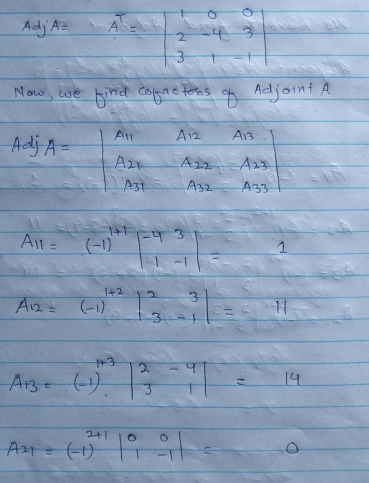 Adj A = A^T = | 1 0 0 |
| 2 -4 3 |
| 3 1 -1 |
Now, we find cofactores of Adjoint A
Adj A = | A11 A12 A13 |
| A21 A22 A23 |
| A31 A32 A33 |
A11 = (-1)^1+1 | -4 3 | = 1
| 1 -1 |
A12 = (-1)^1+2 | 2 3 | = 11
| 3 -1 |
A13 = (-1)^1+3 | 2 -4 | = 14
| 3 1 |
A21 = (-1)^2+1 | 0 0 | = 0
| 1 -1 |